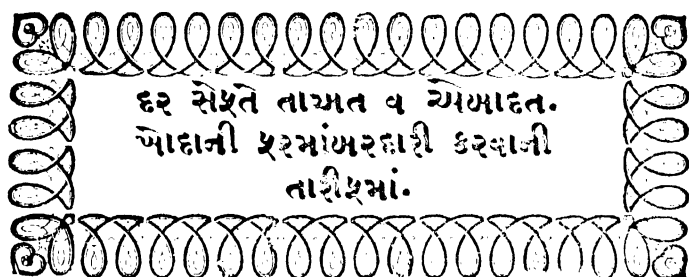 દર સેફતે તાઅત વ એબાદત.
ખોદાની ફરમાંબરદારી કરવાની
તારીફમાં.